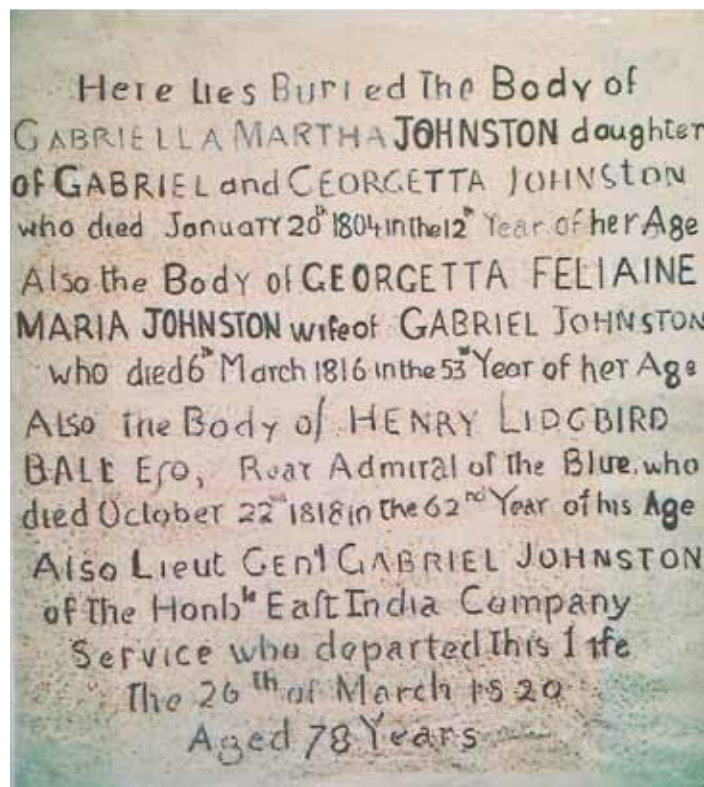 Here lies Buried The Body of
GABRIELLA MARTHA JOHNSTON daughter
of GABRIEL and CEORGETTA JOHNSTON
who died January 20th 1804 in the 12th Year of her Age
Also the Body of GEORGETTA FELIAINE
MARIA JOHNSTON wife of GABRIEL JOHNSTON
who died 6th March 1816 in the 53rd Year of her Age
Also the Body of HENRY LIDGBIRD
BALL Esq, Rear Admiral of the Blue, who
died October 22nd 1818 in the 62nd Year of his Age
Also Lieut Genl GABRIEL JOHNSTON
of The Honble East India Company
Service who departed This life
The 26th of March 1820
Aged 78 Years